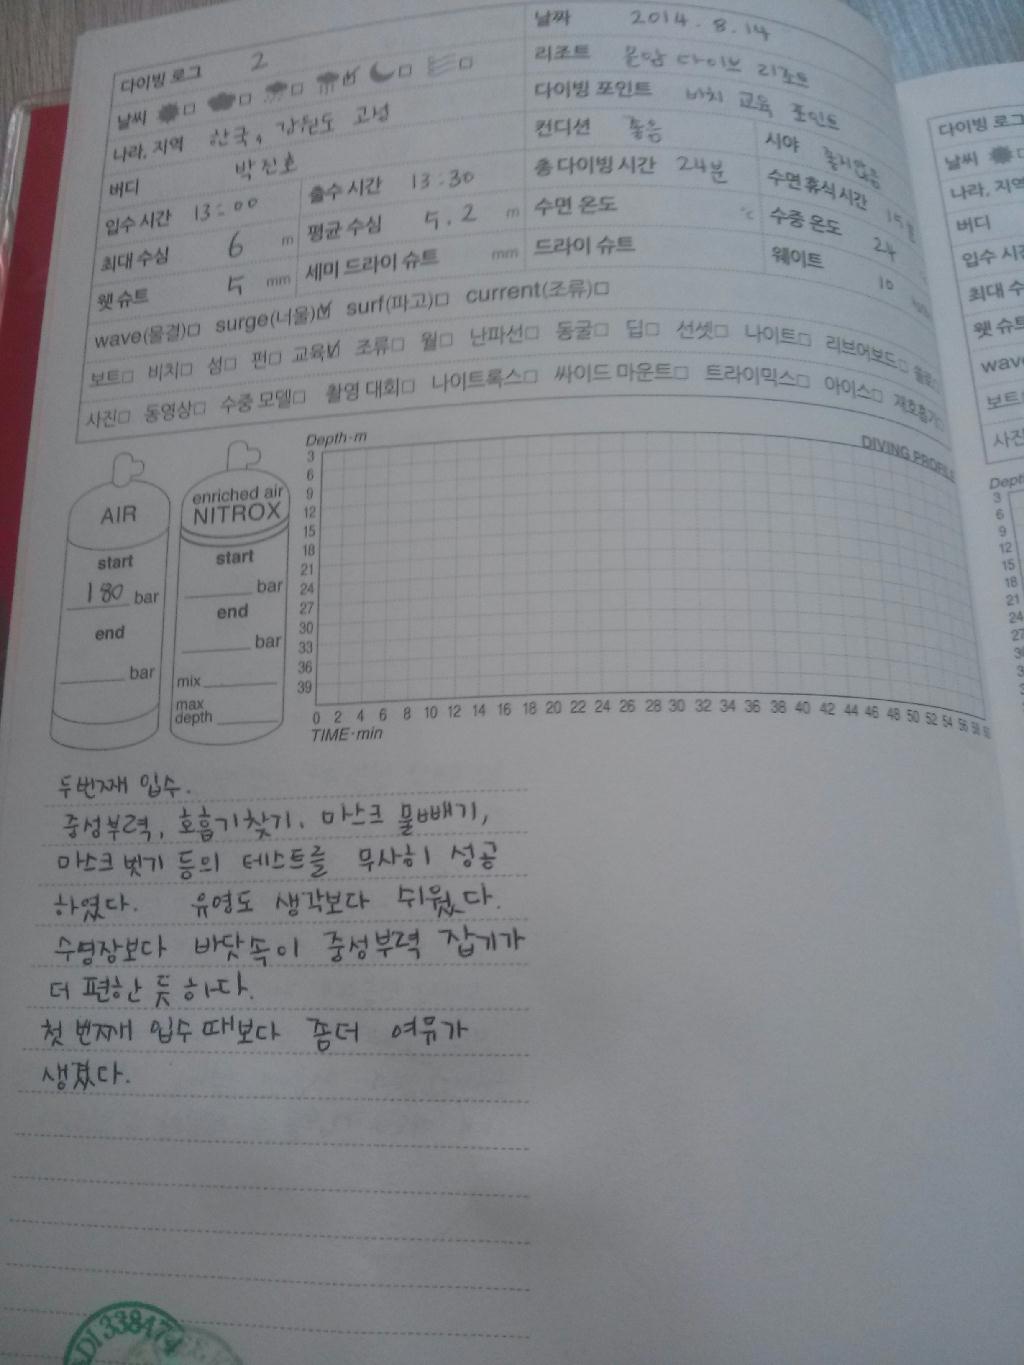 다이빙 로그 2
날짜 2014. 8. 14
날씨
리조트 문암 다이브 리조트
나라, 지역 한국, 강원도 고성
다이빙 포인트 비치 교육 포인트
버디 박진호
컨디션 좋음
시야 좋지않음
입수 시간 13:00
출수 시간 13:30
총 다이빙 시간 24분
수면 휴식 시간
최대 수심 6 m
평균 수심 5.2 m
수면 온도 ℃
수중 온도 24
웻 슈트 5 mm
세미 드라이 슈트 mm
드라이 슈트
웨이트 10
wave(물결)□ surge(너울)☑ surf(파고)□ current(조류)□
보트□ 비치□ 섬□ 펀□ 교육☑ 조류□ 월□ 난파선□ 동굴□ 딥□ 선셋□ 나이트□ 리브어보드□
사진□ 동영상□ 수중 모델□ 촬영 대회□ 나이트록스□ 싸이드 마운트□ 트라이믹스□ 아이스□ 재호흡기□
Depth·m
DIVING PROFILE
3
6
9
12
15
18
21
24
27
30
33
36
39
0 2 4 6 8 10 12 14 16 18 20 22 24 26 28 30 32 34 36 38 40 42 44 46 48 50 52 54 56 58
TIME·min
AIR
start
180 bar
end
bar
enriched air
NITROX
start
bar
end
bar
mix
max
depth
두번째 입수.
중성부력, 호흡기찾기, 마스크 물빼기,
마스크 벗기 등의 테스트를 무사히 성공
하였다. 유영도 생각보다 쉬웠다.
수영장보다 바닷속이 중성부력 잡기가
더 편한 듯 하다.
첫 번째 입수 때보다 좀더 여유가
생겼다.
다이빙 로그
날씨
나라, 지역
버디
입수 시간
최대 수
웻 슈트
wave
보트
사진
Depth
3
6
9
12
15
18
21
24
27